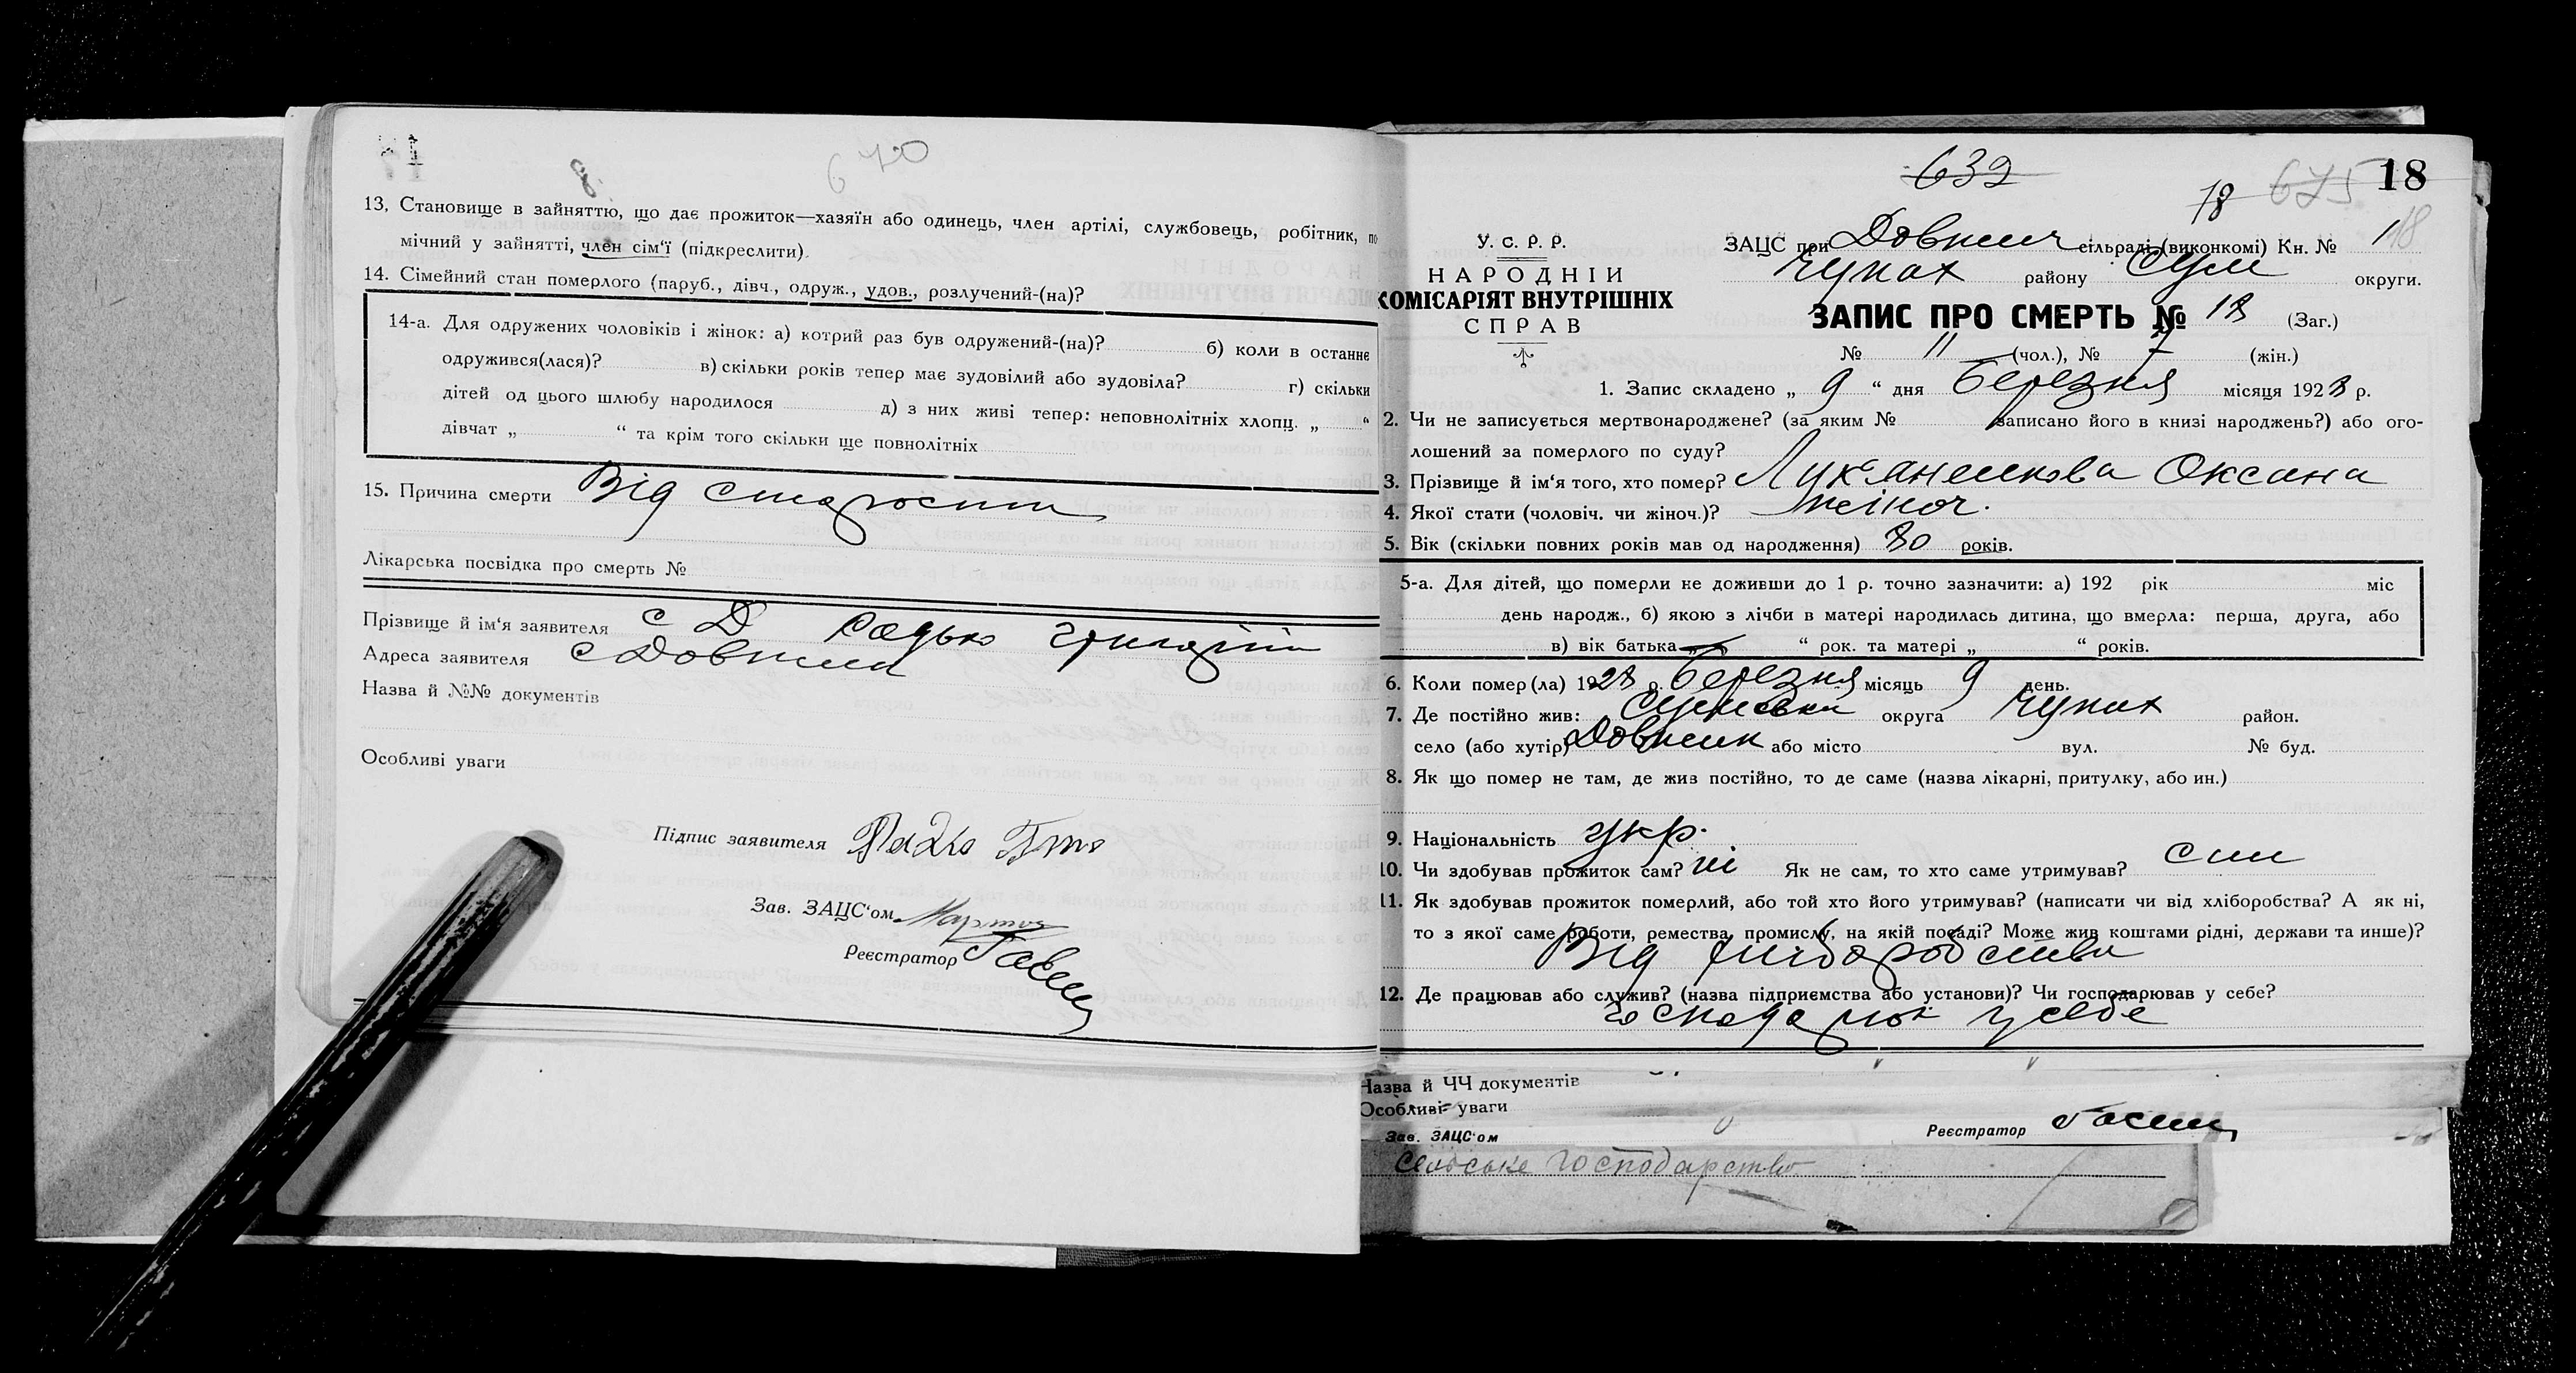 670
13. Становище в зайняттю, що дає прожиток—хазяїн або одинець, член артілі, службовець, робітник, по
мічний у зайнятті, член сім‘ї (підкреслити).
14. Сімейний стан померлого (паруб., дівч., одруж., удов., розлучений-(на)?
14-а. Для одружених чоловіків і жінок: а) котрий раз був одружений-(на)? б) коли в останнє
одружився(лася)? в) скільки років тепер має зудовілий або зудовіла? г) скільки
дітей од цього шлюбу народилося д) з них живі тепер: неповнолітніх хлопц. „ “
дівчат „ “ та крім того скільки ще повнолітніх
15. Причина смерти Від старости
Лікарська посвідка про смерть №
Прізвище й ім‘я заявителя с Д Радько Григорій
Адреса заявителя с Довжик
Назва й №№ документів
Особливі уваги
Підпис заявителя Радко
Зав. ЗАЦС‘ом
Реєстратор
632
18 675 18
У. С. Р. Р.
НАРОДНІЙ
КОМІСАРІЯТ ВНУТРІШНІХ
СПРАВ
ЗАЦС при Довжич сільраді (виконкомі) Кн. № 1 18
Чупах району Сум округи.
ЗАПИС ПРО СМЕРТЬ № 18 (Заг.)
№ 11 (чол.), № 7 (жін.)
1. Запис складено „ 9 “ дня Березня місяця 1928 р.
2. Чи не записується мертвонароджене? (за яким № записано його в книзі народжень?) або ого-
лошений за померлого по суду?
3. Прізвище й ім‘я того, хто помер? Оксана
4. Якої стати (чоловіч. чи жіноч.)? жіноч.
5. Вік (скільки повних років мав од народження) 80 років.
5-а. Для дітей, що померли не доживши до 1 р. точно зазначити: а) 192 рік міс
день народж., б) якою з лічби в матері народилась дитина, що вмерла: перша, друга, або
в) вік батька „ “ рок. та матері „ “ років.
6. Коли помер(ла) 1928 р. Березня місяць 9 день.
7. Де постійно жив: Сумська округа Чупах район.
село (або хутір) Довжик або місто вул. № буд.
8. Як що помер не там, де жив постійно, то де саме (назва лікарні, притулку, або ин.)
9. Національність укр.
10. Чи здобував прожиток сам? ні Як не сам, то хто саме утримував? син
11. Як здобував прожиток померлий, або той хто його утримував? (написати чи від хліборобства? А як ні,
то з якої саме роботи, ремества, промислу, на якій посаді? Може жив коштами рідні, держави та инше)?
Від хліборобства
12. Де працював або служив? (назва підприємства або установи)? Чи господарював у себе?
господарює у себе
Назва й ЧЧ документів
Особливі уваги
Зав. ЗАЦС‘ом Реєстратор
сельське господарство